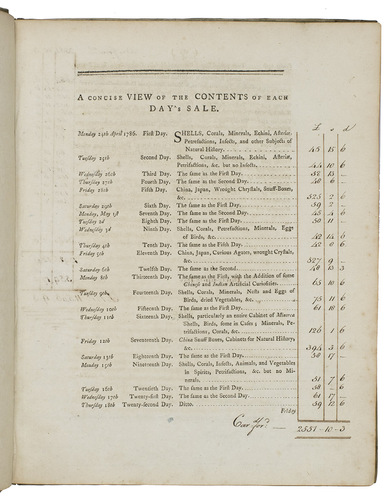 A CONCISE VIEW OF THE CONTENTS OF EACH
DAY's SALE.
£ s d
Monday 24th April 1786. First Day. SHELLS, Corals, Minerals, Echini, Asteriæ,
Petrifactions, Insects, and other Subjects of
Natural History. 48 15 6
Tuesday 25th Second Day. Shells, Corals, Minerals, Echini, Asteriæ,
Petrifactions, &c. but no Insects. 44 10 6
Wednesday 26th Third Day. The same as the First Day. 52 13 —
Thursday 27th Fourth Day. The same as the Second Day. 40 6 —
Friday 28th Fifth Day. China, Japan, Wrought Chrystals, Snuff-Boxes,
&c. 325 2 6
Saturday 29th Sixth Day. The same as the First Day. 39 2 —
Monday, May 1st Seventh Day. The same as the Second Day. 45 4 6
Tuesday 2d Eighth Day. The same as the First Day. 50 11 —
Wednesday 3d Ninth Day. Shells, Corals, Petrifactions, Minerals, Eggs
of Birds, &c. 42 14 6
Thursday 4th Tenth Day. The same as the Fifth Day. 42 0 6
Friday 5th Eleventh Day. China, Japan, Curious Agates, wrought Chrystals,
&c. 327 9 —
Saturday 6th Twelfth Day. The same as the Second. 40 13 3
Monday 8th Thirteenth Day. The same as the First, with the Addition of some
Chinese and Indian Artificial Curiosities. 65 10 6
Tuesday 9th Fourteenth Day. Shells, Corals, Minerals, Nests and Eggs of
Birds, dried Vegetables, &c. 75 11 6
Wednesday 10th Fifteenth Day. The same as the First Day. 61 10 6
Thursday 11th Sixteenth Day. Shells, particularly an entire Cabinet of Minute
Shells, Birds, some in Cases; Minerals, Petrifactions,
Corals, &c. 126 1 6
Friday 12th Seventeenth Day. China Snuff Boxes, Cabinets for Natural History,
&c. 394 5 6
Saturday 13th Eighteenth Day. The same as the First Day. 50 17 —
Monday 15th Nineteenth Day. Shells, Corals, Insects, Animals, and Vegetables
in Spirits, Petrifactions, &c. but no Minerals.
51 7 6
Tuesday 16th Twentieth Day. The same as the First Day. 58 — 6
Wednesday 17th Twenty-first Day. The same as the First Day. 61 17 —
Thursday 18th Twenty-second Day. Ditto. 59 12 6
Friday
Car. for'd — 2551-10-3